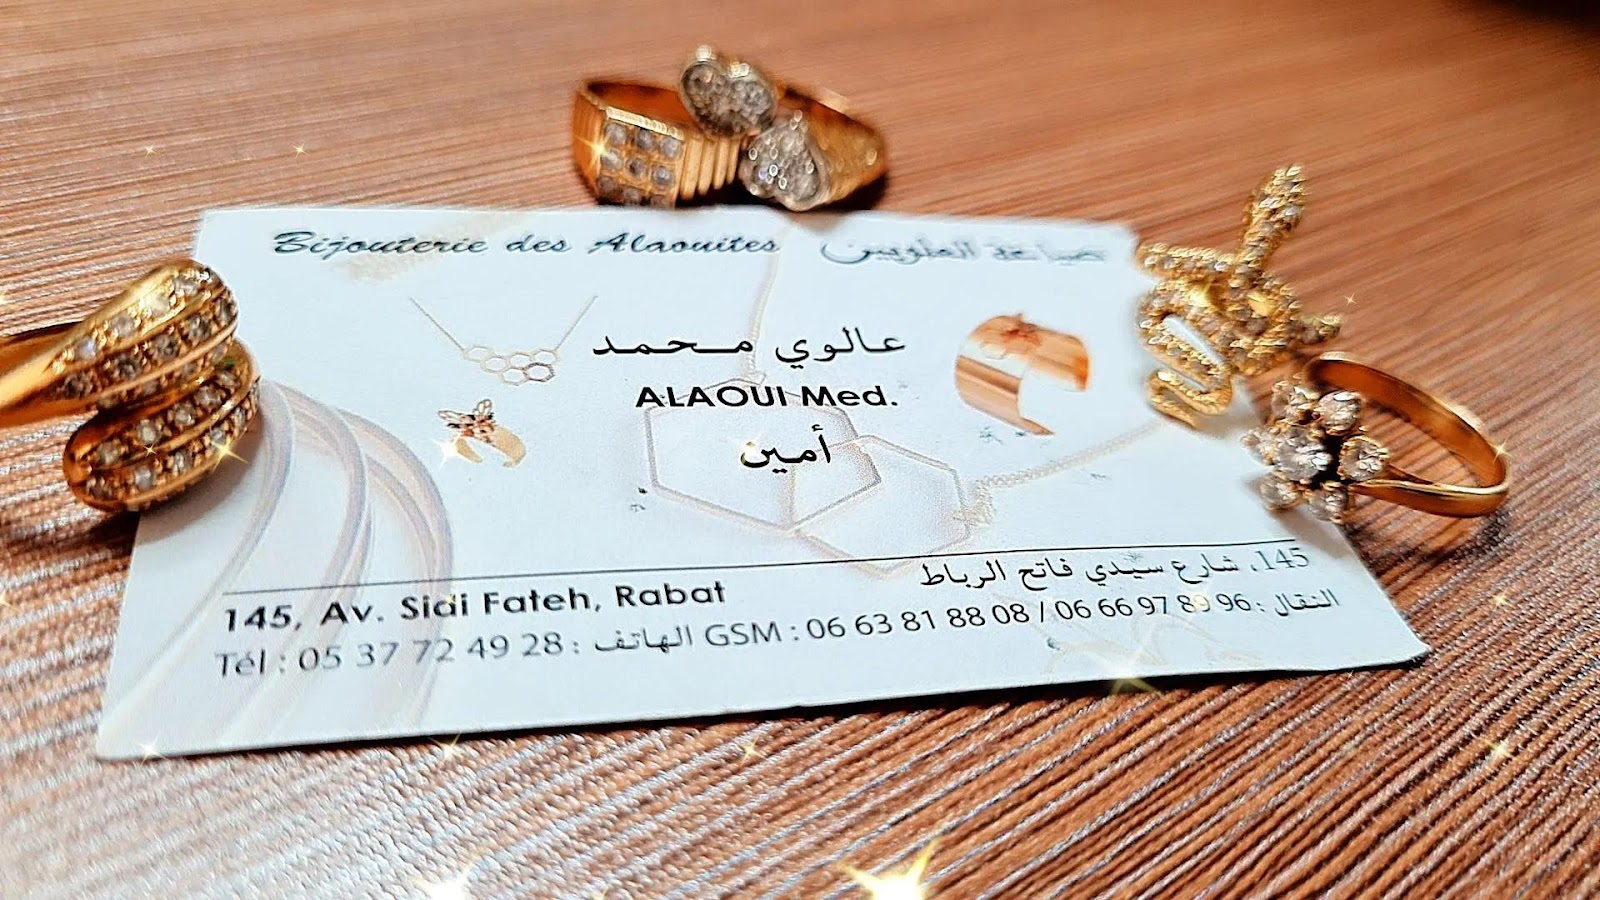 Bijouterie des Alaouites صياغة العلويين
عالوي محمد
ALAOUI Med.
أمين
145, Av. Sidi Fateh, Rabat 145، شارع سيدي فاتح الرباط
Tél : 05 37 72 49 28 : الهاتف GSM : 06 63 81 88 08 / 06 66 97 89 96 : النقال